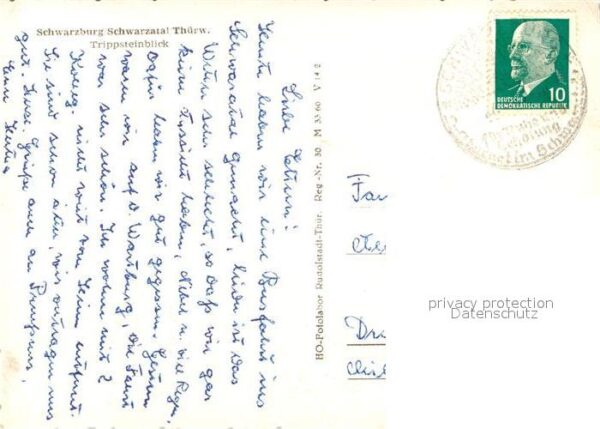 Schwarzburg Schwarzatal Thürw.
Trippsteinblick
Liebe Eltern!
Heute haben wir eine Busfahrt ins
Schwarzatal gemacht, leider ist das
Wetter sehr schlecht, so daß wir gar
keine Fernsicht haben, Nebel u. viel Regen.
Dafür haben wir gut gegessen. Gestern
waren wir auf d. Wartburg, die Fahrt
war sehr schön. Ich wohne mit 2
Kolleg. nicht weit vom Heim entfernt.
Sie sind schon älter, wir vertragen uns
gut. Grüße auch an
HO-Fotolabor Rudolstadt-Thür. Reg.-Nr. 30 M 33 60 V 14 2
DEUTSCHE
DEMOKRATISCHE REPUBLIK
10
Erholung
im Schwarzatal
privacy protection
Datenschutz